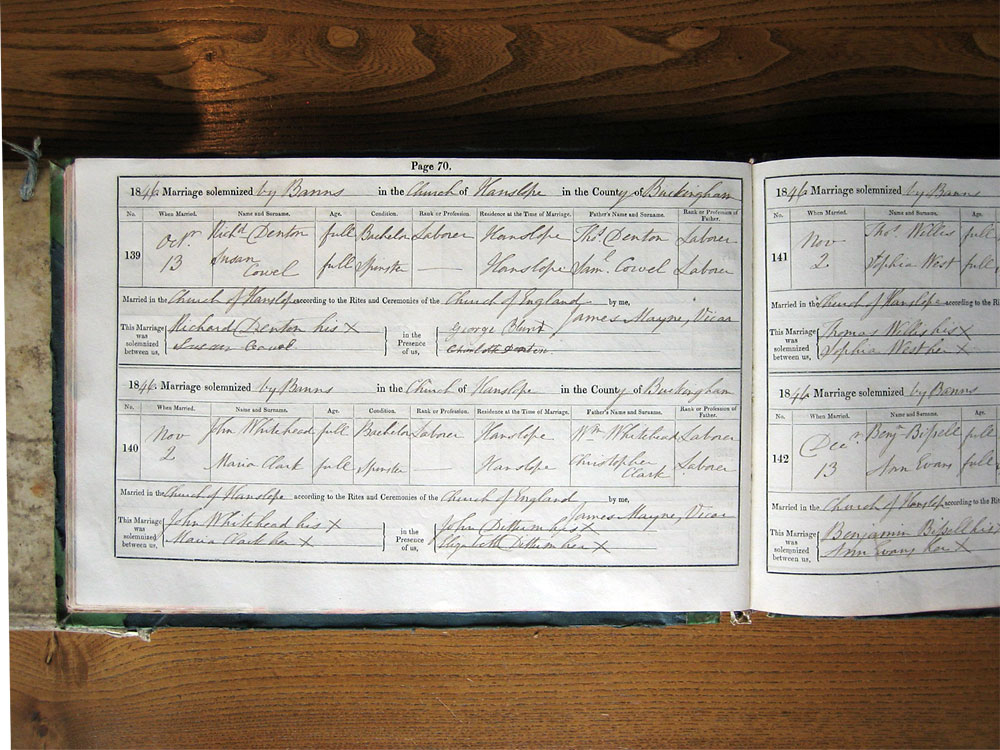 Page 70.
1846 Marriage solemnized by Banns in the Church of Hanslope in the County of Buckingham
No. When Married. Name and Surname. Age. Condition. Rank or Profession. Residence at the Time of Marriage. Father's Name and Surname. Rank or Profession of Father.
139 Octr. 13 Richd Denton full Bachelor Laborer Hanslope Thos. Denton Laborer
Susan Cowel full Spinster — Hanslope Saml. Cowel Laborer
Married in the Church of Hanslope according to the Rites and Ceremonies of the Church of England by me,
James Mayne, Vicar
This Marriage was solemnized between us, Richard Denton his X in the Presence of us, George Blunt
Susan Cowel Charlotte Denton
1846 Marriage solemnized by Banns in the Church of Hanslope in the County of Buckingham
No. When Married. Name and Surname. Age. Condition. Rank or Profession. Residence at the Time of Marriage. Father's Name and Surname. Rank or Profession of Father.
140 Nov 2 John Whitehead full Bachelor Laborer Hanslope Wm Whitehead Laborer
Maria Clark full Spinster — Hanslope Christopher Clark Laborer
Married in the Church of Hanslope according to the Rites and Ceremonies of the Church of England, by me,
James Mayne, Vicar
This Marriage was solemnized between us, John Whitehead his X in the Presence of us, John his X
Maria Clark her X Elizabeth her X
1846 Marriage solemnized by Banns
No. When Married. Name and Surname. Age
141 Nov 2 Thos. Willis full
Sophia West full
Married in the Church of Hanslope according to the Ri
This Marriage was solemnized between us, Thomas Willis his X
Sophia West her X
1846 Marriage solemnized by Banns
No. When Married. Name and Surname. Age
142 Decr. 13 Benjn Bissell full
Ann Evans full
Married in the Church of Hanslope according to the Ri
This Marriage was solemnized between us, Benjamin Bissell his
Ann Evans her X